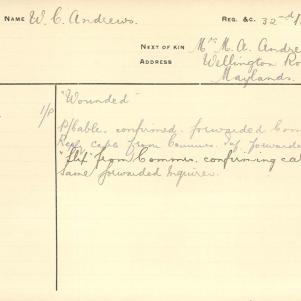 NAME W. C. Andrews. REG. &C. 32nd/
NEXT OF KIN Mrs M. A. Andre
ADDRESS Wellington Ro
Maylands.
"Wounded"
1/P P/Cable. confirmed. forwarded Com
Rep. cable from Commrs. forwarde
from Commrs. confirming ca
Same forwarded Inquirer.